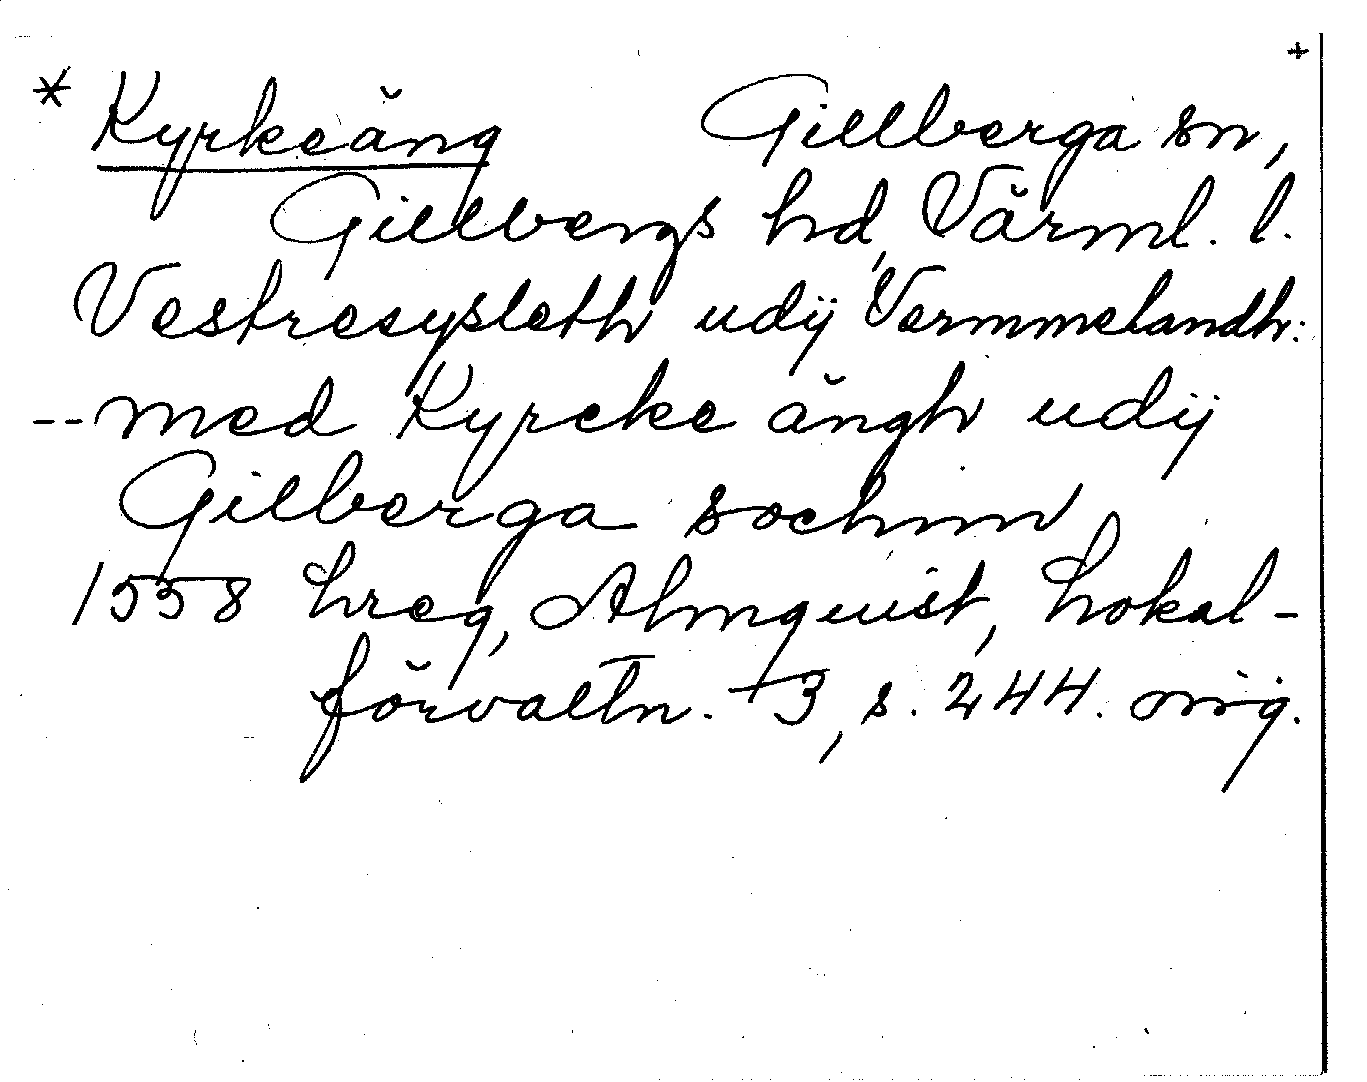 +
* Kyrkeäng Gillberga sn,
Gillbergs hd, Värml. l.
Vestresysleth udÿ Vermmelandh:
-- med Kyrcke ängh udÿ
Gilberga sochnn
1558 hreg, Almquist, Lokal-
förvaltn. 3, s. 244.